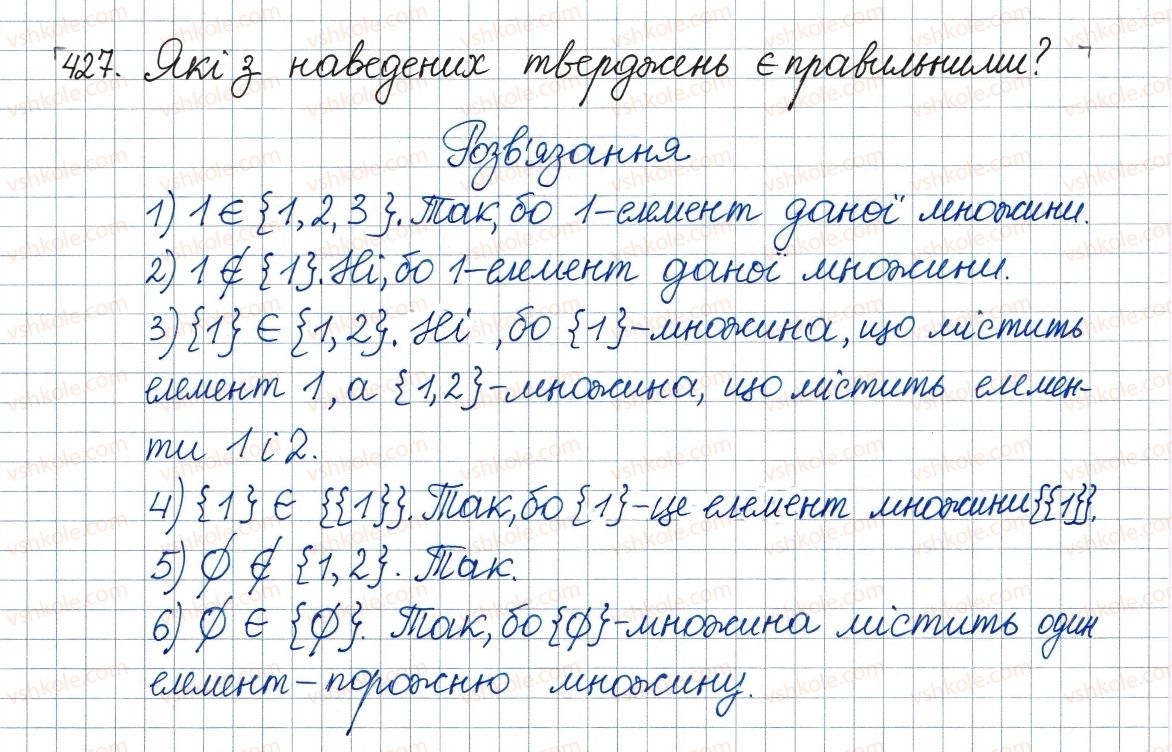 427. Які з наведених тверджень є правильними?
Розв'язання
1) 1 ∈ {1, 2, 3}. Так, бо 1 – елемент даної множини.
2) 1 ∉ {1}. Ні, бо 1 – елемент даної множини.
3) {1} ∈ {1, 2}. Ні, бо {1} – множина, що містить
елемент 1, а {1, 2} – множина, що містить елемен-
ти 1 і 2.
4) {1} ∈ {{1}}. Так, бо {1} – це елемент множини {{1}}.
5) ∅ ∉ {1, 2}. Так.
6) ∅ ∈ {∅}. Так, бо {∅} – множина містить один
елемент – порожню множину.